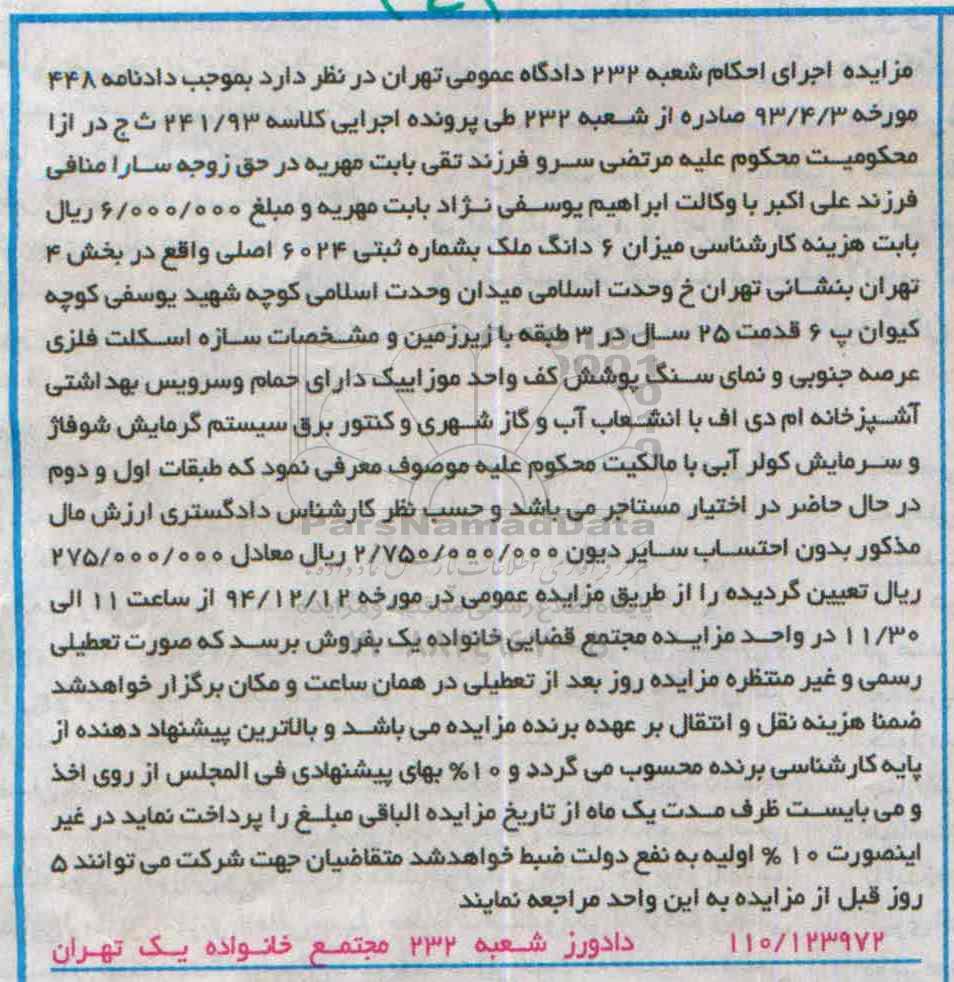 مزایده اجرای احکام شعبه ۲۳۲ دادگاه عمومی تهران در نظر دارد بموجب دادنامه ۴۴۸
مورخه ۹۳/۴/۳ صادره از شعبه ۲۳۲ طی پرونده اجرایی کلاسه ۲۴۱/۹۳ ث ج در ازا
محکومیت محکوم علیه مرتضی سرو فرزند تقی بابت مهریه در حق زوجه سارا منافی
فرزند علی اکبر با وکالت ابراهیم یوسفی نژاد بابت مهریه و مبلغ ۶/۰۰۰/۰۰۰ ریال
بابت هزینه کارشناسی میزان ۶ دانگ ملک بشماره ثبتی ۶۰۲۴ اصلی واقع در بخش ۴
تهران بنشانی تهران خ وحدت اسلامی میدان وحدت اسلامی کوچه شهید یوسفی کوچه
کیوان پ ۶ قدمت ۲۵ سال در ۳ طبقه با زیرزمین و مشخصات سازه اسکلت فلزی
عرصه جنوبی و نمای سنگ پوشش کف واحد موزاییک دارای حمام وسرویس بهداشتی
آشپزخانه ام دی اف با انشعاب آب و گاز شهری و کنتور برق سیستم گرمایش شوفاژ
و سرمایش کولر آبی با مالکیت محکوم علیه موصوف معرفی نمود که طبقات اول و دوم
در حال حاضر در اختیار مستاجر می باشد و حسب نظر کارشناس دادگستری ارزش مال
مذکور بدون احتساب سایر دیون ۲/۷۵۰/۰۰۰/۰۰۰ ریال معادل ۲۷۵/۰۰۰/۰۰۰
ریال تعیین گردیده را از طریق مزایده عمومی در مورخه ۹۴/۱۲/۱۲ از ساعت ۱۱ الی
۱۱/۳۰ در واحد مزایده مجتمع قضایی خانواده یک بفروش برسد که صورت تعطیلی
رسمی و غیر منتظره مزایده روز بعد از تعطیلی در همان ساعت و مکان برگزار خواهدشد
ضمنا هزینه نقل و انتقال بر عهده برنده مزایده می باشد و بالاترین پیشنهاد دهنده از
پایه کارشناسی برنده محسوب می گردد و ۱۰% بهای پیشنهادی فی المجلس از روی اخذ
و می بایست ظرف مدت یک ماه از تاریخ مزایده الباقی مبلغ را پرداخت نماید در غیر
اینصورت ۱۰ % اولیه به نفع دولت ضبط خواهدشد متقاضیان جهت شرکت می توانند ۵
روز قبل از مزایده به این واحد مراجعه نمایند
۱۱۰/۱۲۳۹۷۲ دادورز شعبه ۲۳۲ مجتمع خانواده یک تهران
ParsNamadData